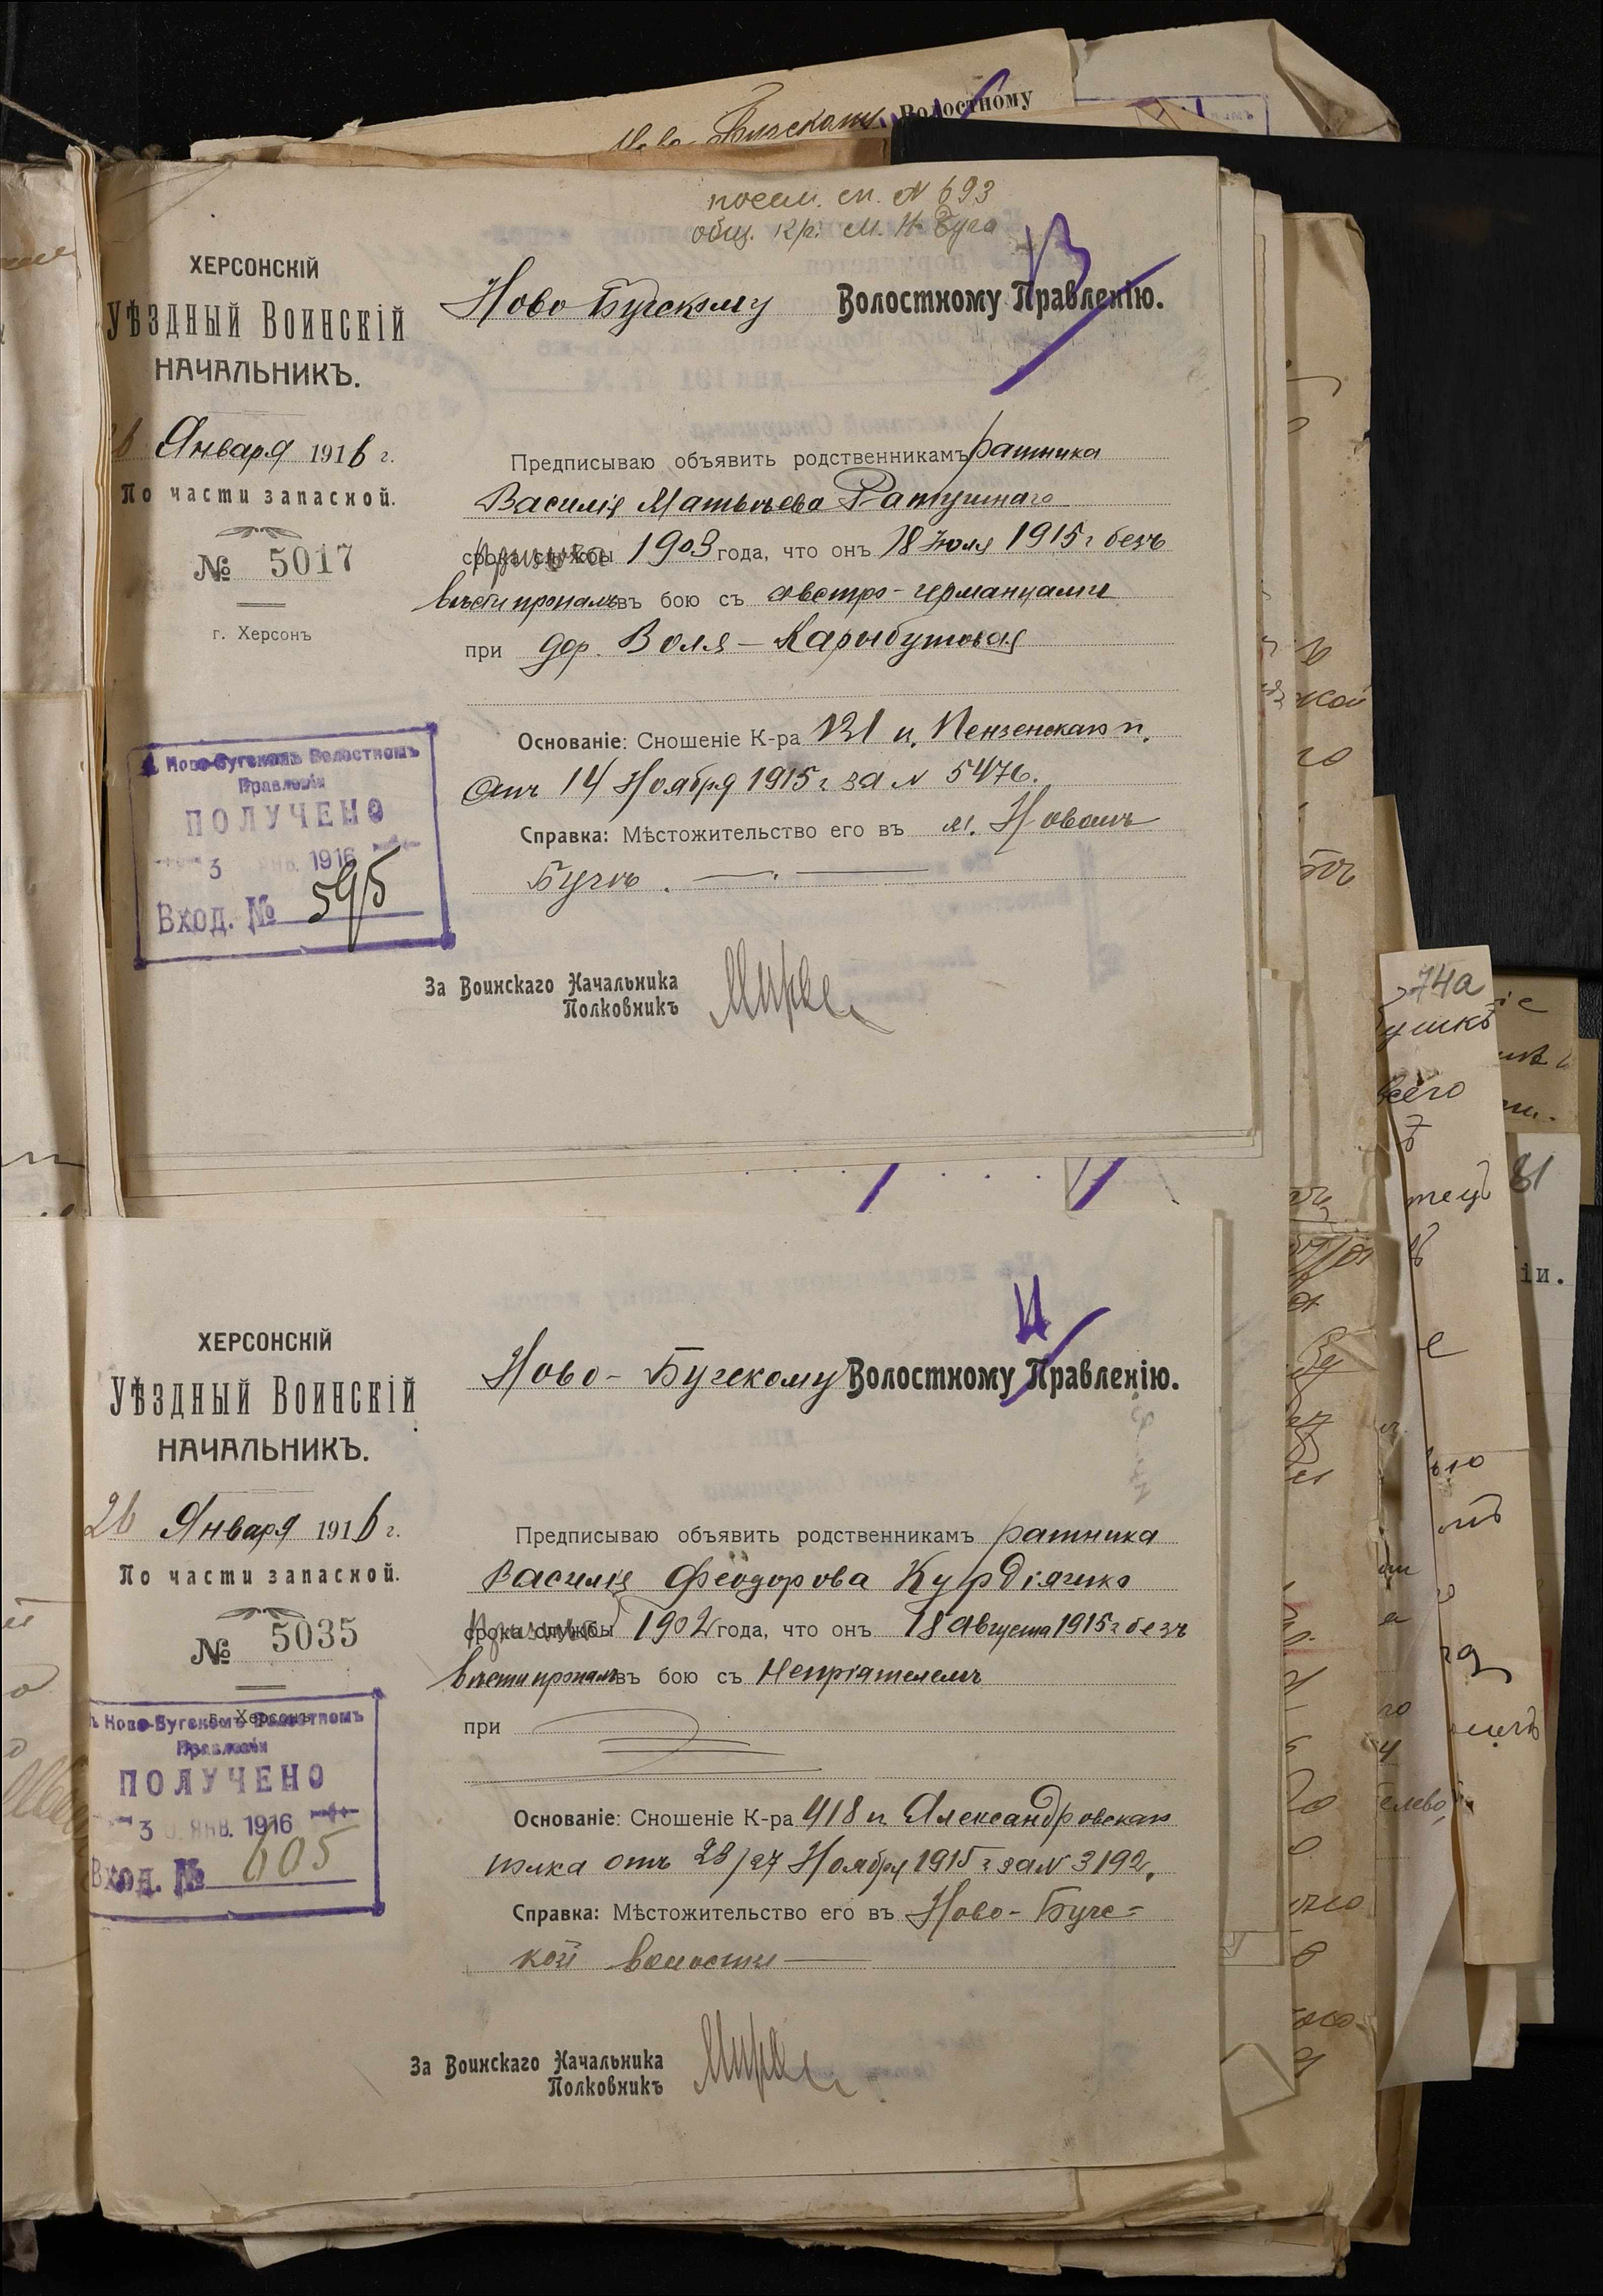 Волостному
посем. сп. № 693
общ. кр. м. Н. Буга
ХЕРСОНСКІЙ
УѢЗДНЫЙ ВОИНСКІЙ
НАЧАЛЬНИКЪ.
Января 1916 г.
По части запасной.
№ 5017
г. Херсонъ
Ново-Бугскому Волостному Правленію.
Предписываю объявить родственникамъ ратника
Василія Матвѣева Ратушнаго
срока службы 1903 года, что онъ 18 Іюля 1915 г безъ
вѣсти пропалъ въ бою съ австро-германцами
при дер. Воля-Карыбутовая
Основаніе: Сношеніе К-ра 121 п. Пензенскаго п.
отъ 14 Ноября 1915 г за № 5476.
Справка: Мѣстожительство его въ м. Новомъ
Бугѣ.
Ново-Бугскомъ Волостномъ
Правленіи
ПОЛУЧЕНО
3 ЯНВ. 1916
Вход. № 595
За Воинскаго Начальника
Полковникъ
ХЕРСОНСКІЙ
УѢЗДНЫЙ ВОИНСКІЙ
НАЧАЛЬНИКЪ.
26 Января 1916 г.
По части запасной.
№ 5035
г. Херсонъ
Ново-Бугскому Волостному Правленію.
Предписываю объявить родственникамъ ратника
Василія Феодорова Курдіячко
срока службы 1902 года, что онъ 18 августа 1915 г безъ
вѣсти пропалъ въ бою съ непріятелемъ
при
Основаніе: Сношеніе К-ра 418 п Александровскаго
полка отъ 23/27 Ноября 1915 г за № 3192.
Справка: Мѣстожительство его въ Ново-Бугс=
кой волости
Ново-Бугскомъ Волостномъ
Правленіи
ПОЛУЧЕНО
30 ЯНВ. 1916
Вход. № 605
За Воинскаго Начальника
Полковникъ
74а
всего
81